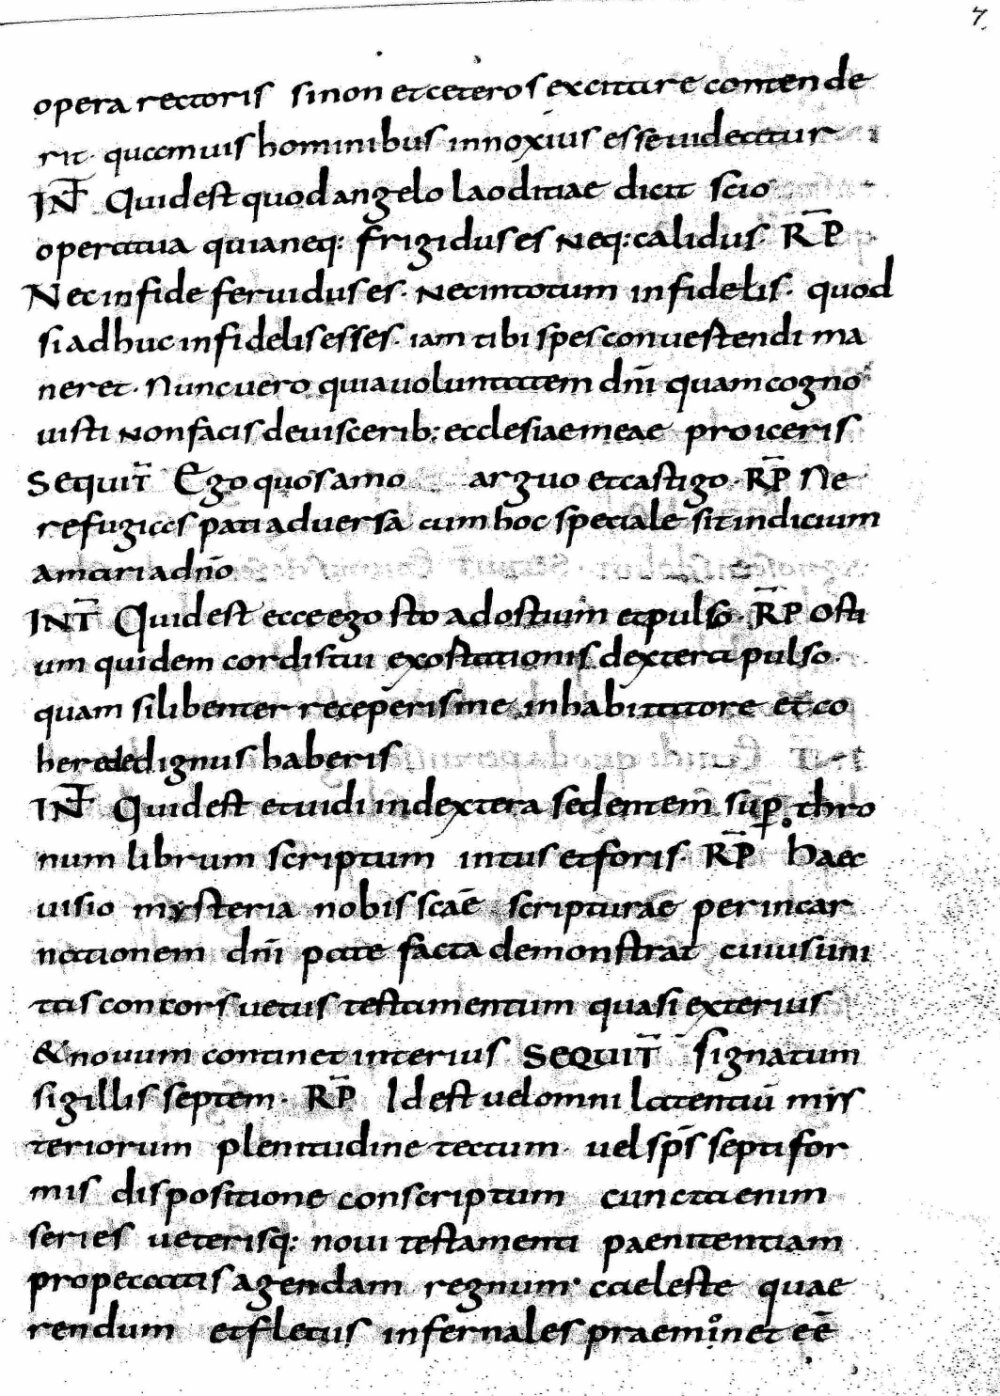 7
opera rectoris si non et ceteros excitare contende
rit· quamuis hominibus innoxius esse uideatur
INT̄ Quid est quod angelo laoditiae dicit scio
opera tua quia neq: frigidus es neq: calidus· RP̄
Nec in fide feruidus es· nec in totum infidelis· quod
si adhuc infidelis esses· iam tibi spes conuestendi ma
neret· Nunc uero quia uoluntatem dn̄i quam cogno
uisti non facis de uiscerib: ecclesiae meae proiceris
SEQUIT̄ Ego quos amo arguo et castigo· RP̄ Ne
refugias pati aduersa cum hoc speciale sit indicium
amari a dn̄o
INT̄ Quid est ecce ego sto ad ostium et pulso· RP̄ Osti
um quidem cordis tui exostationis dextera pulso·
quam si libenter receperis me inhabitatore et co
herede dignus haberis
INT̄ Quid est et uidi in dextera sedentem sup̱ thro
num librum scriptum intus et foris· RP̄ Haec
uisio mysteria nobis scāe scripturae per incar
nationem dn̄i pate facta demonstrat cuius uni
tas concors uetus testamentum quasi exterius
& nouum continet interius SEQUIT̄ signatum
sigillis septem· RP̄ Id est uel omni latentiū mys
teriorum plenitudine tectum· uel sp̄s septifor
mis dispositione conscriptum cuncta enim
series ueterisq: noui testamenti paenitentiam
pro peccatis agendam regnum caeleste quae
rendum et fletus infernales praeminet eē